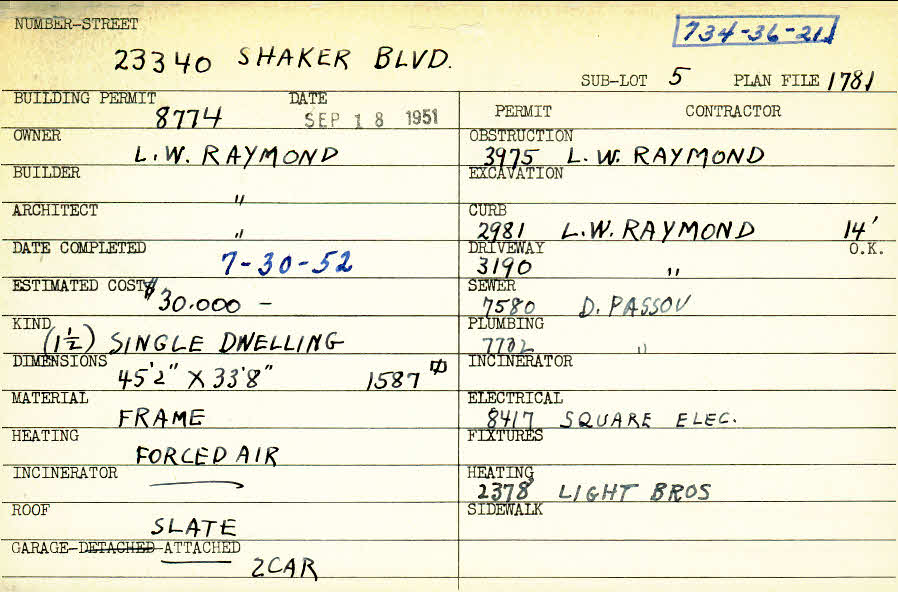 NUMBER-STREET
734-36-21
23340 SHAKER BLVD.
SUB-LOT 5 PLAN FILE 1781
BUILDING PERMIT DATE
8774 SEP 18 1951
OWNER
L.W. RAYMOND
BUILDER
"
ARCHITECT
"
DATE COMPLETED
7-30-52
ESTIMATED COST $
30.000 -
KIND
(1½) SINGLE DWELLING
DIMENSIONS
45'2" X 33'8" 1587
MATERIAL
FRAME
HEATING
FORCED AIR
INCINERATOR
ROOF
SLATE
GARAGE-DETACHED-ATTACHED
2 CAR
PERMIT CONTRACTOR
OBSTRUCTION
3975 L.W. RAYMOND
EXCAVATION
CURB
2981 L.W. RAYMOND 14'
DRIVEWAY O.K.
3190 "
SEWER
7580 D. PASSOV
PLUMBING
7702 "
INCINERATOR
ELECTRICAL
8417 SQUARE ELEC.
FIXTURES
HEATING
2378 LIGHT BROS
SIDEWALK